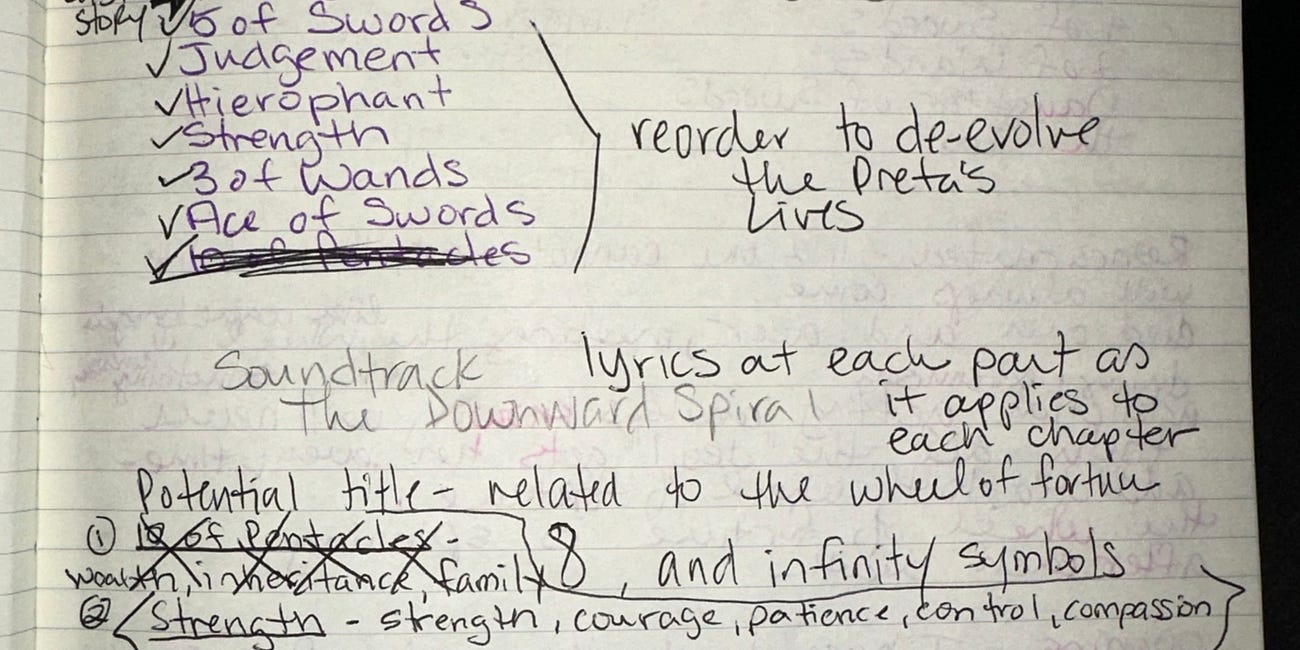 STORY 5 of Swords
✓Judgement
✓Hierophant
✓Strength
✓3 of Wands
✓Ace of Swords
✓10 of Pentacles
reorder to de-evolve
the Preta's
Lives
Soundtrack
The Downward Spiral
lyrics at each part as
it applies to
each chapter
Potential title - related to the wheel of fortune
① 10 of Pentacles -
wealth, inheritance, family
8, and infinity symbols
② Strength - strength, courage, patience, control, compassion